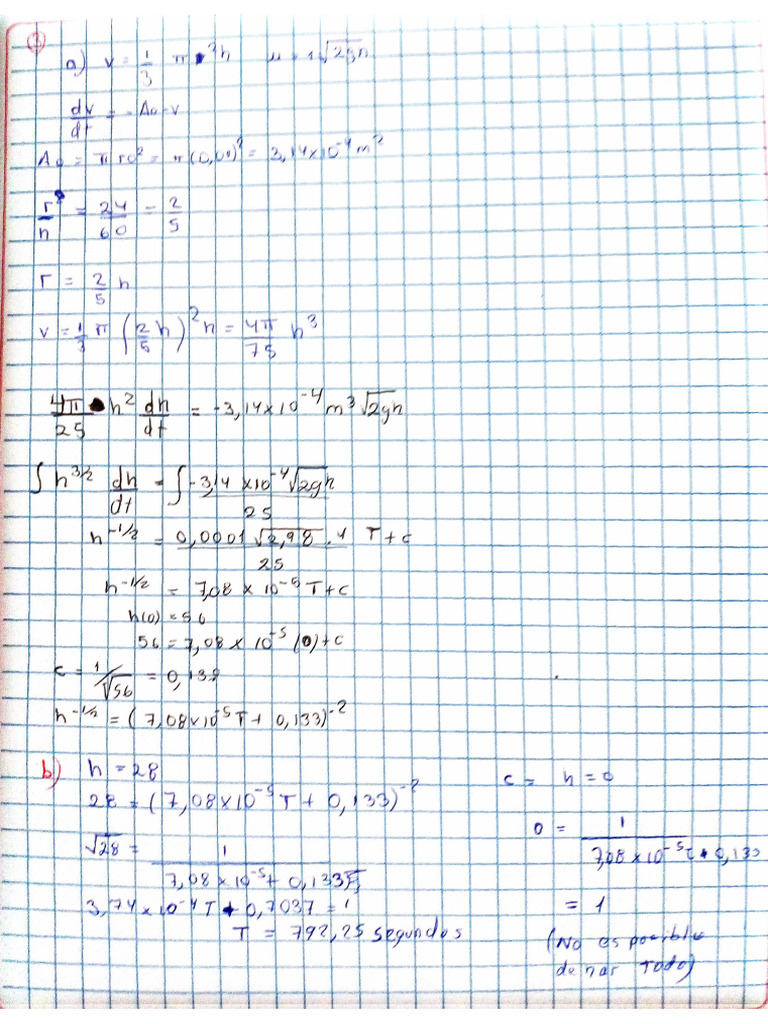 3
a) v = 1/3 π r²h   μ = 1√2gh
dv/dt = -Ao·v
Ao = π ro² = π(0,01)² = 3,14×10⁻⁴m²
r/h = 24/60 = 2/5
r = 2/5 h
v = 1/3 π (2/5 h)² h = 4π/75 h³
4π/25 h² dh/dt = -3,14×10⁻⁴ m³ √2gh
∫ h^3/2 dh/dt = ∫ -3,14 ×10⁻⁴ √2gh / 25
h^-1/2 = 0,0001 √2,98 . 4 / 25 T + c
h^-1/2 = 7,08 × 10⁻⁵ T + c
h(0) = 56
56 = 7,08 × 10⁻⁵ (0) + c
c = 1/√56 = 0,133
h^-1/2 = (7,08×10⁻⁵ T + 0,133)⁻²
b) h = 28
28 = (7,08×10⁻⁵ T + 0,133)⁻²
√28 = 1 / 7,08×10⁻⁵ + 0,133
3,74×10⁻⁴ T + 0,7037 = 1
T = 792,25 segundos
c = h = 0
0 = 1 / 7,08×10⁻⁵ t + 0,133
= 1
(No es posible
de nar todo)